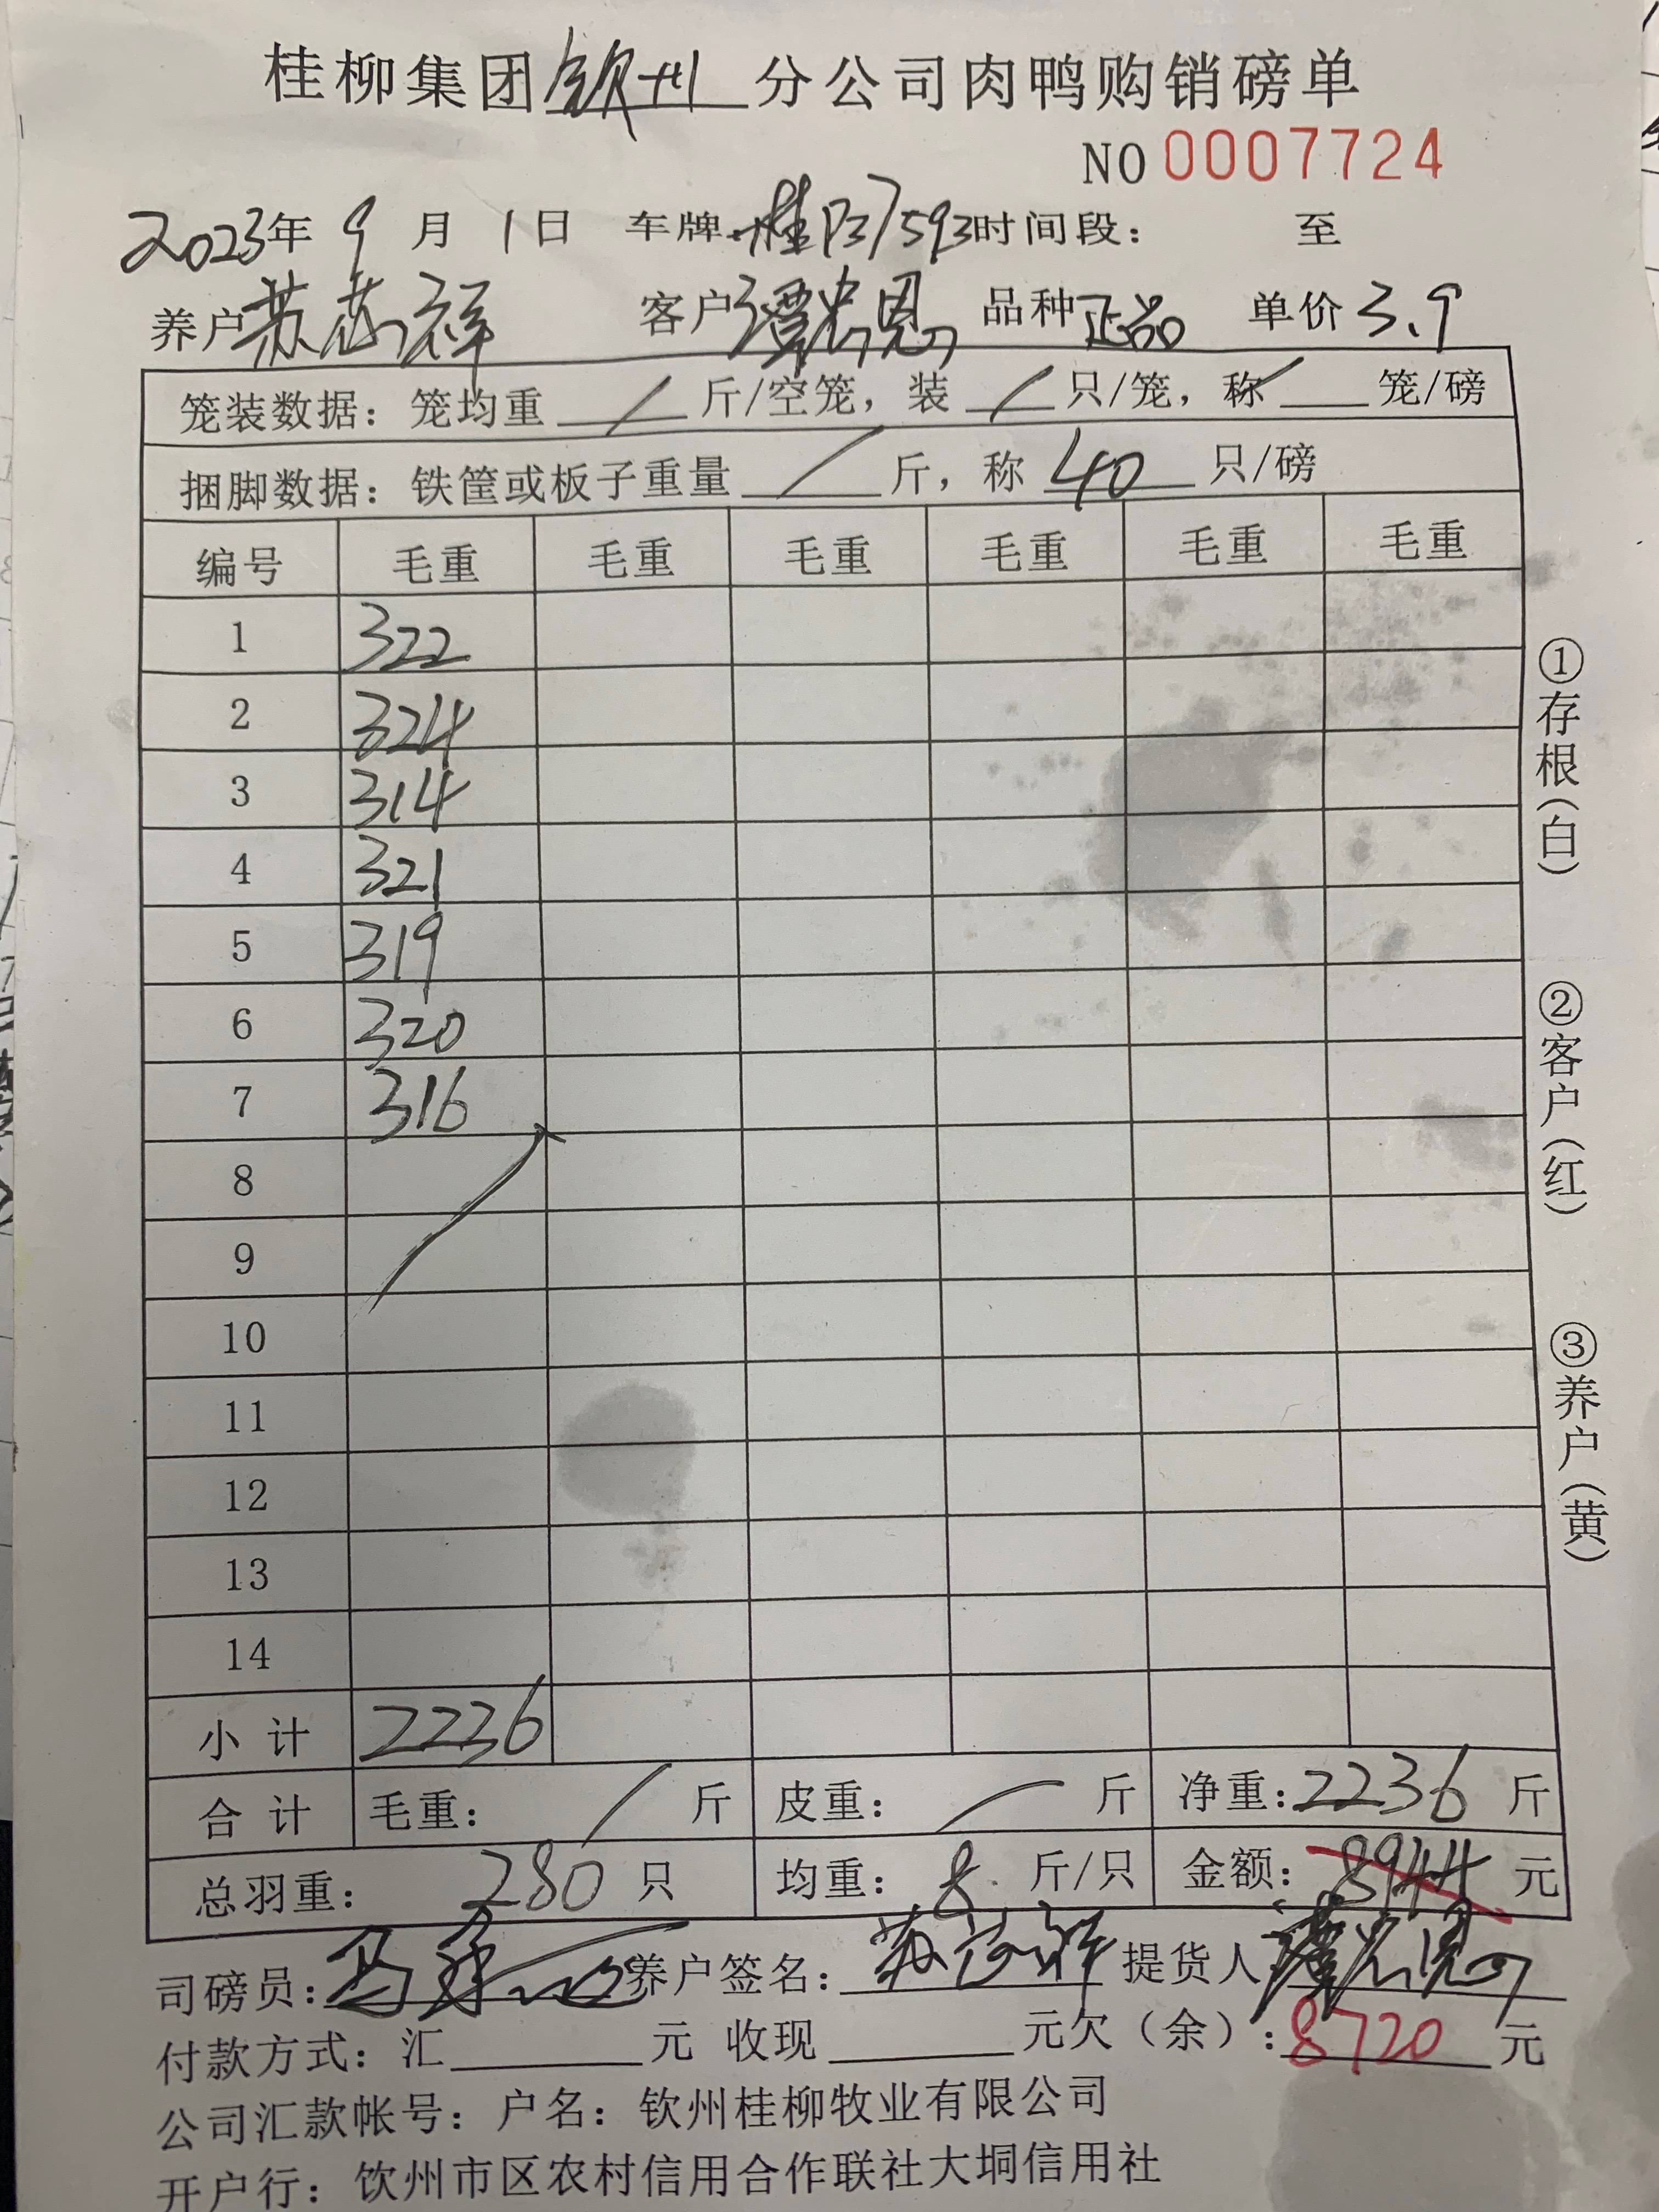 桂柳集团钦州分公司肉鸭购销磅单
NO 0007724
2023年 9 月 1日 车牌:桂P37593时间段: 至
养户 客户谭忠恩 品种正品 单价3.9
笼装数据:笼均重 / 斤/空笼,装 / 只/笼,称 / 笼/磅
捆脚数据:铁筐或板子重量 / 斤,称 40 只/磅
编号 毛重 毛重 毛重 毛重 毛重 毛重
1 322
2 324
3 314
4 321
5 319
6 320
7 316
8
9
10
11
12
13
14
小 计 2236
合 计 毛重: / 斤 皮重: / 斤 净重:2236 斤
总羽重: 280 只 均重: 8 斤/只 金额: 8944 元
司磅员: 养户签名: 提货人:谭忠恩
付款方式:汇 元 收现 元欠(余):8720 元
公司汇款帐号:户名:钦州桂柳牧业有限公司
开户行:钦州市区农村信用合作联社大垌信用社
①存根(白)
②客户(红)
③养户(黄)